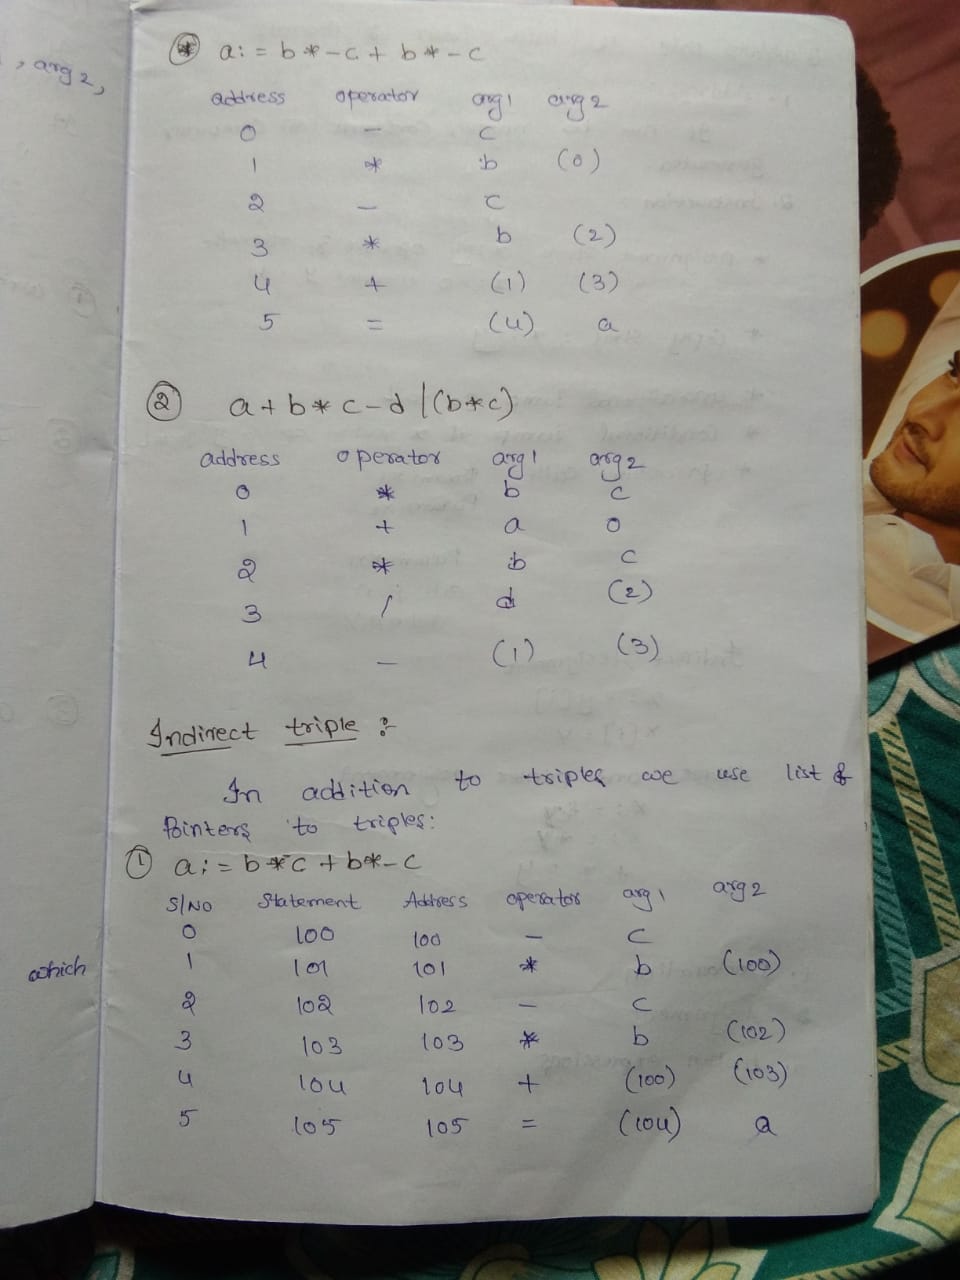 , arg 2,
which
* a: = b * - c + b * - c
address operator arg1 arg 2
0 - c
1 * b (0)
2 - c
3 * b (2)
4 + (1) (3)
5 = (4) a
② a + b * c - d / (b*c)
address operator arg1 arg 2
0 * b c
1 + a 0
2 * b c
3 / d (2)
4 - (1) (3)
Indirect triple :-
In addition to triples we use list of
Pointers to triples:
① a: = b * -c + b * - c
S/NO Statement Address operator arg 1 arg 2
0 100 100 - c
1 101 101 * b (100)
2 102 102 - c
3 103 103 * b (102)
4 104 104 + (100) (103)
5 105 105 = (104) a